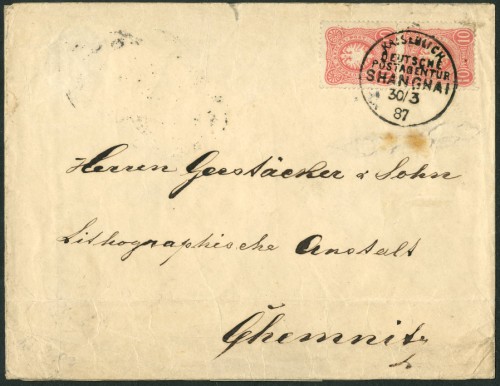 KAISERLICH
DEUTSCHE
POSTAGENTUR
SHANGHAI
30/3
87
10
Herren Gerstäcker & Sohn
Lithographische Anstalt
Chemnitz